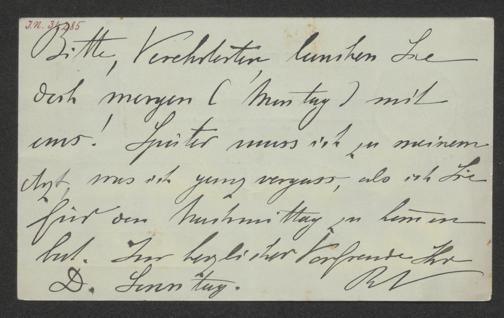 I.N. 
Bitte, Verehrtester, lunchen Sie
doch morgen (Montag) mit
uns! Später muss ich zu meinem
Arzt, was ich ganz vergass, als ich Sie
für den Nachmittag zu kommen
bat. In herzlicher Vorfreude Ihr
D. Sonntag.